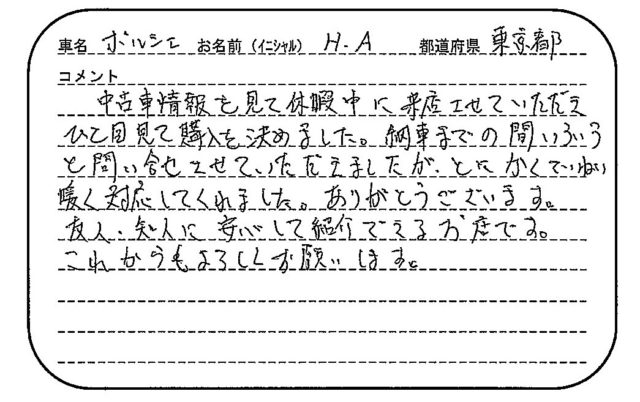 車名 ポルシェ お名前（イニシャル） H.A 都道府県 東京都
コメント
中古車情報を見て休暇中に来店させていただき
ひと目見て購入を決めました。納車までの間いろいろ
と問い合せさせていただきましたが、とにかくていねい
暖く対応してくれました。ありがとうございます。
友人・知人に安心して紹介できるお店です。
これからもよろしくお願いします。